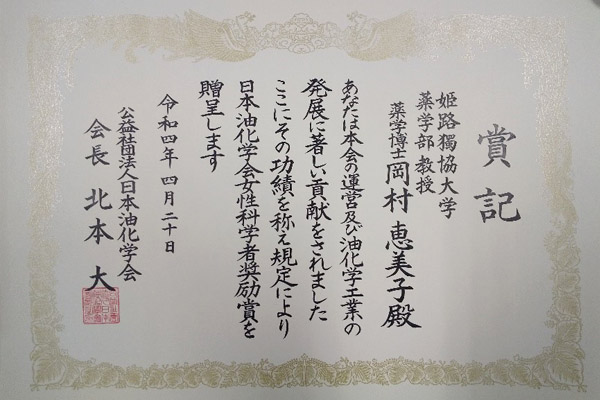 賞記
姫路獨協大学
薬学部教授
薬学博士 岡村 恵美子殿
あなたは本会の運営及び油化学工業の
発展に著しい貢献をされました
ここにその功績を称え規定により
日本油化学会女性科学者奨励賞を
贈呈します
令和四年 四月二十日
公益社団法人日本油化学会
会長 北本 大